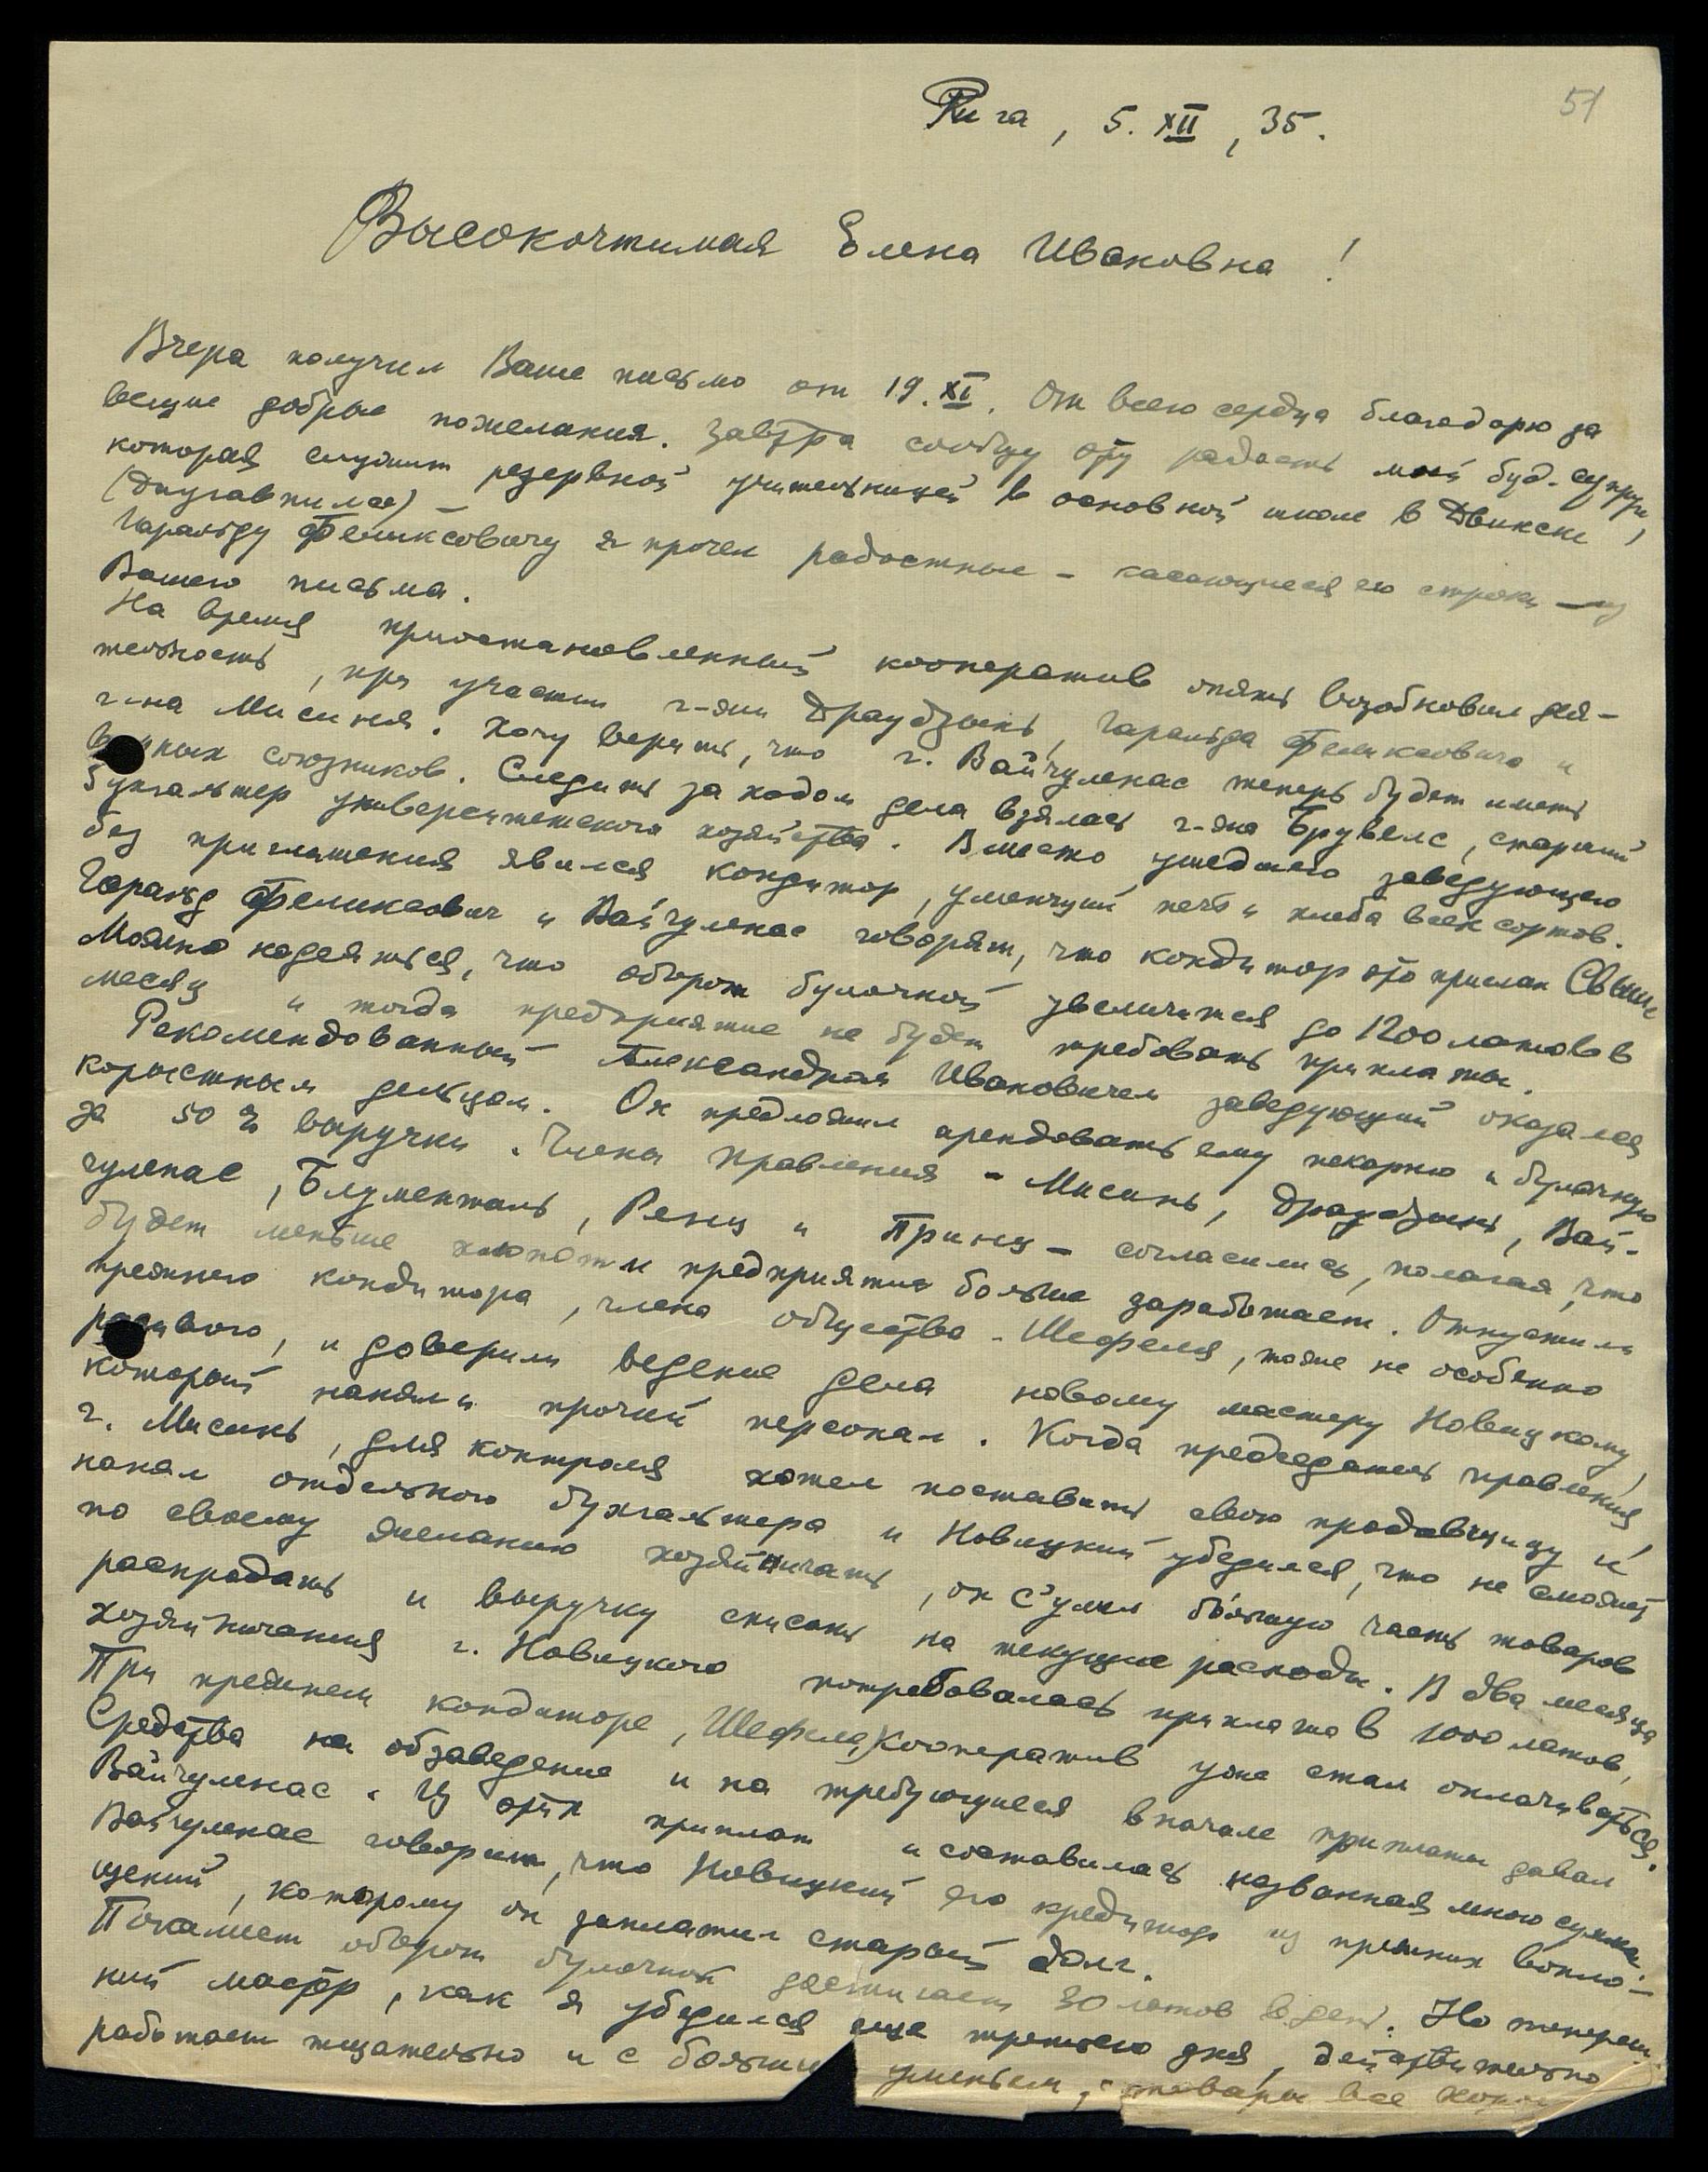 51
Рига, 5. XII, 35.
Высокочтимая Елена Ивановна!
Вчера получил Ваше письмо от 19. XI. От всего сердца благодарю за
вещие добрые пожелания. Завтра сообщу эту радость моей буд. супруге,
которая служит резервной учительницей в основной школе в Двинске
(Даугавпилсе)
Гаральду Феликсовичу я прочел радостные - касающиеся его строки - из
Вашего письма.
На время приостановленный кооператив опять возобновил дея-
тельность, при участии г-жи Драудзынь, Гаральда Феликсовича и
г-на Мисиня. Хочу верить, что г. Вайчуленас теперь будет иметь
союзников. Следить за ходом дела взялась г-жа Брувелс, старший
бухгалтер университетского хозяйства. Вместо ушедшего заведующего
без приглашения явился кондитор, умеющий печь и хлеба всех сортов.
Гаральд Феликсович и Вайчуленас говорят, что кондитор это прислан Свыше
Можно надеяться, что оборот булочной увеличится до 1200 латов в
месяц и тогда предприятие не будет требовать приплаты.
Рекомендованный Александром Ивановичем заведующий оказался
корыстным дельцом. Он предложил арендовать ему пекарню и булочную
за 50 % выручки. Члены правления - Мисинь, Драудзынь, Вай-
чуленас, Блументаль, Ренц и Принц - согласились, полагая, что
будет меньше хлопот и предприятие больше заработает. Отпустили
прежнего кондитора, члена общества - Шефеля, тоже не особенно
и доверили ведение дела новому мастеру Новицкому,
который нанял и прочий персонал. Когда председатель правления,
г. Мисинь, для контроля хотел поставить свою продавщицу и
нанял отдельного бухгалтера и Новицкий убедился, что не сможет
по своему желанию хозяйничать, он с'умел бóльшую часть товаров
распродать и выручку списать на текущие расходы. В два месяца
хозяйничания г. Новицкого потребовалась приплата в 1000 латов,
При прежнем кондиторе, Шефеле, кооператив уже стал оплачиваться.
Средства на обзаведение и на требующиеся вначале приплаты давал
Вайчуленас. Из этих приплат и составилась названная мною сумма.
Вайчуленас говорит, что Новицкий его кредитор из прежних вопло-
щений, которому он заплатил старый долг.
Покамест оборот булочной достигает 30 латов в день. Но тепереш-
ний мастер, как я убедился еще третьего дня, действительно
работает тщательно и с большим уменьем, товары все